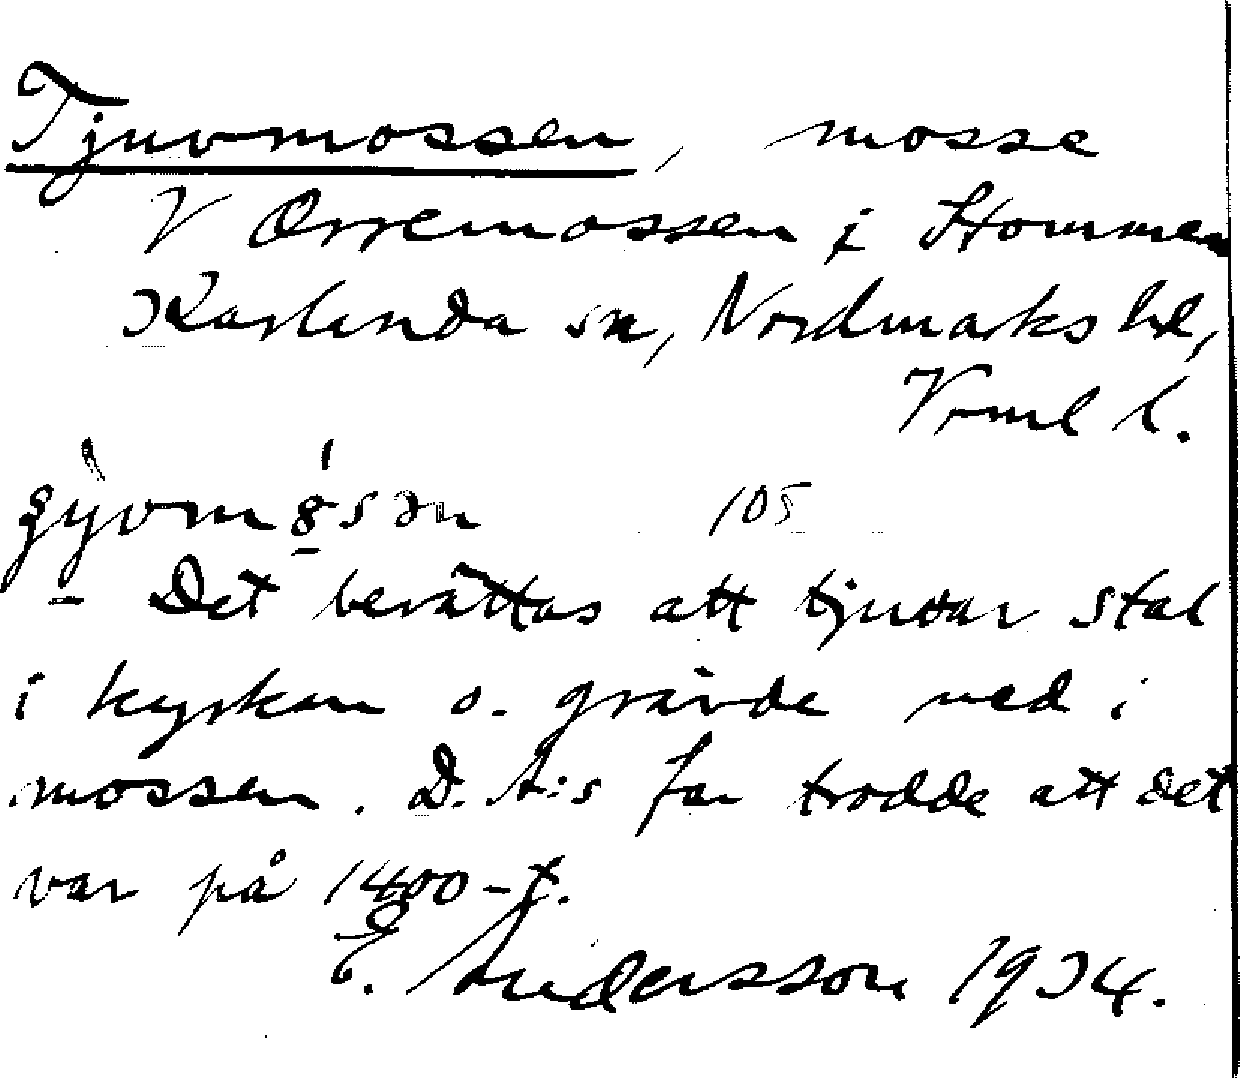 Tjuvmossen, mosse
V Orremossen i Stommen
Karlanda sn, Nordmarks hd,
Vrml l.
105
Det berättas att tjuvar stal
i kyrkan o. grävde ned i
mossen. D. A:s far trodde att det
var på 1400-t.
E. Andersson 1934.